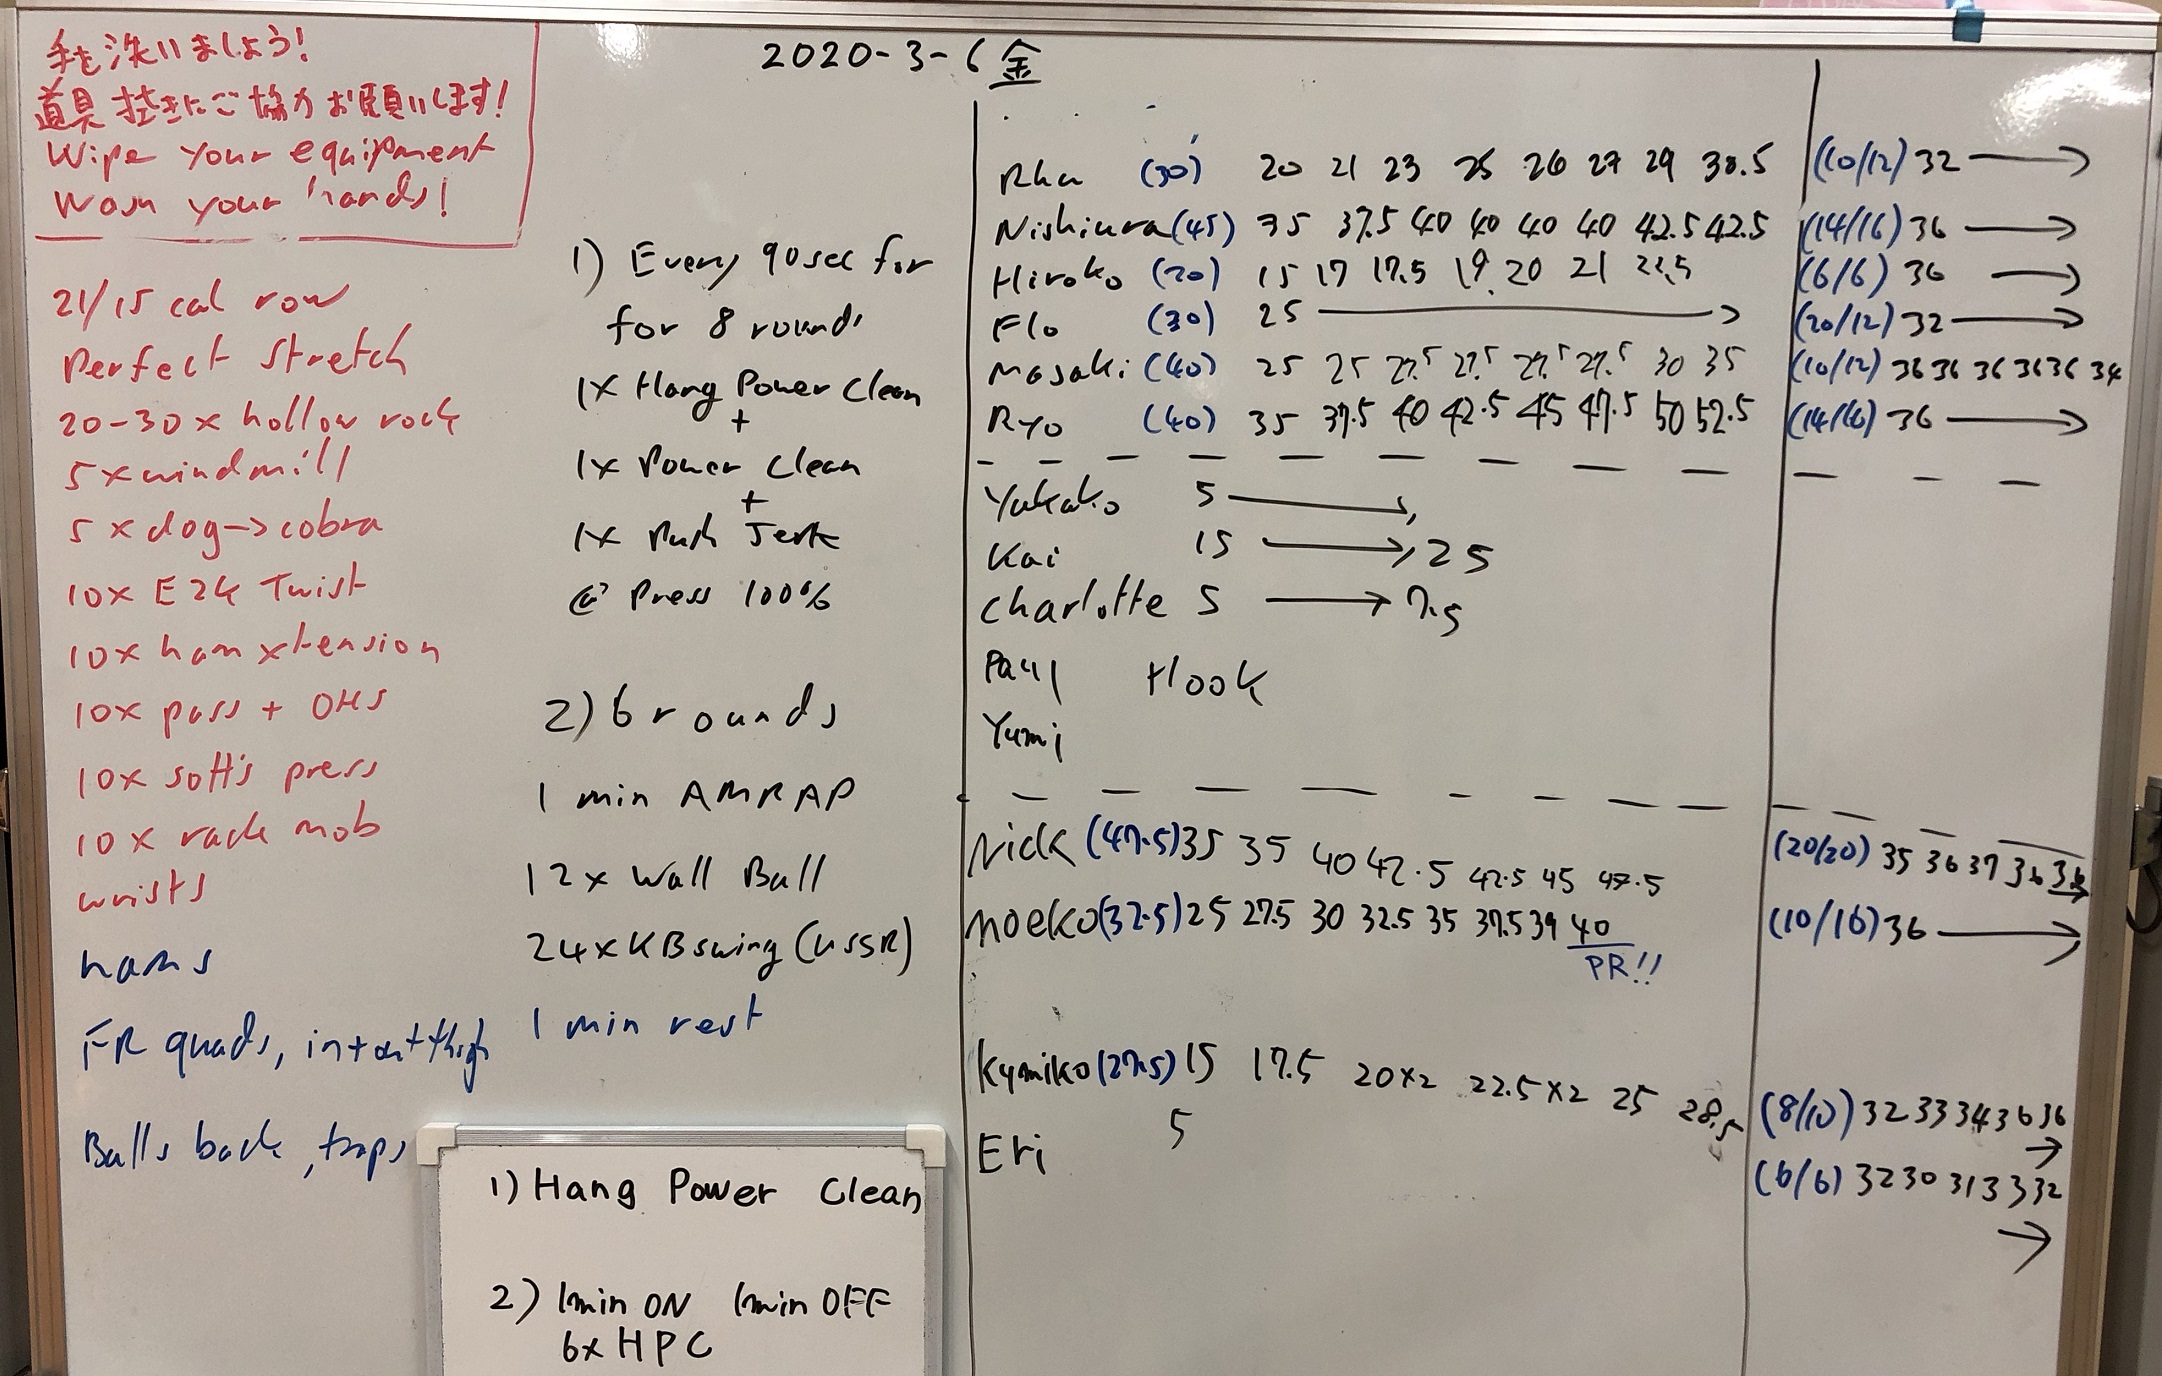 2020-3-6 金
手を洗いましょう!
道具拭きにご協力お願いします!
Wipe your equipment
Wash your hands!
21/15 cal row
Perfect Stretch
20-30 x hollow rock
5 x windmill
5 x dog -> cobra
10x E2K Twist
10x ham xtension
10x pass + OHS
10x sotts press
10 x rack mob
wrists
hams
FR quads, in+out thigh
Balls back, traps
1) Every 90sec for
for 8 rounds
1x Hang Power Clean
+
1x Power Clean
+
1x Push Jerk
@ Press 100%
2) 6 rounds
1 min AMRAP
12x Wall Ball
24x KB swing (USSR)
1 min rest
1) Hang Power Clean
2) 1min ON 1min OFF
6x HPC
(30) 20 21 23 25 26 27 29 30.5 (10/12) 32 →
Nishiura (45) 35 37.5 40 40 40 40 42.5 42.5 (14/16) 36 →
Hiroko (20) 15 17 17.5 19 20 21 22.5 (6/6) 36 →
Flo (30) 25 → (20/12) 32 →
Masaki (40) 25 25 27.5 27.5 27.5 27.5 30 35 (10/12) 36 36 36 36 36 34
Ryo (40) 35 37.5 40 42.5 45 47.5 50 52.5 (14/16) 36 →
Yukako 5 →
Kai 15 → 25
Charlotte 5 → 7.5
Paul Hook
Yumi
Nick (47.5) 35 35 40 42.5 42.5 45 47.5 (20/20) 35 36 37 36 36 →
Moeko (32.5) 25 27.5 30 32.5 35 37.5 39 40 (10/16) 36 →
PR!!
Kumiko (27.5) 15 17.5 20x2 22.5x2 25 28.5 (8/10) 32 33 34 36 36 →
Eri 5 (6/6) 32 30 31 33 32 →